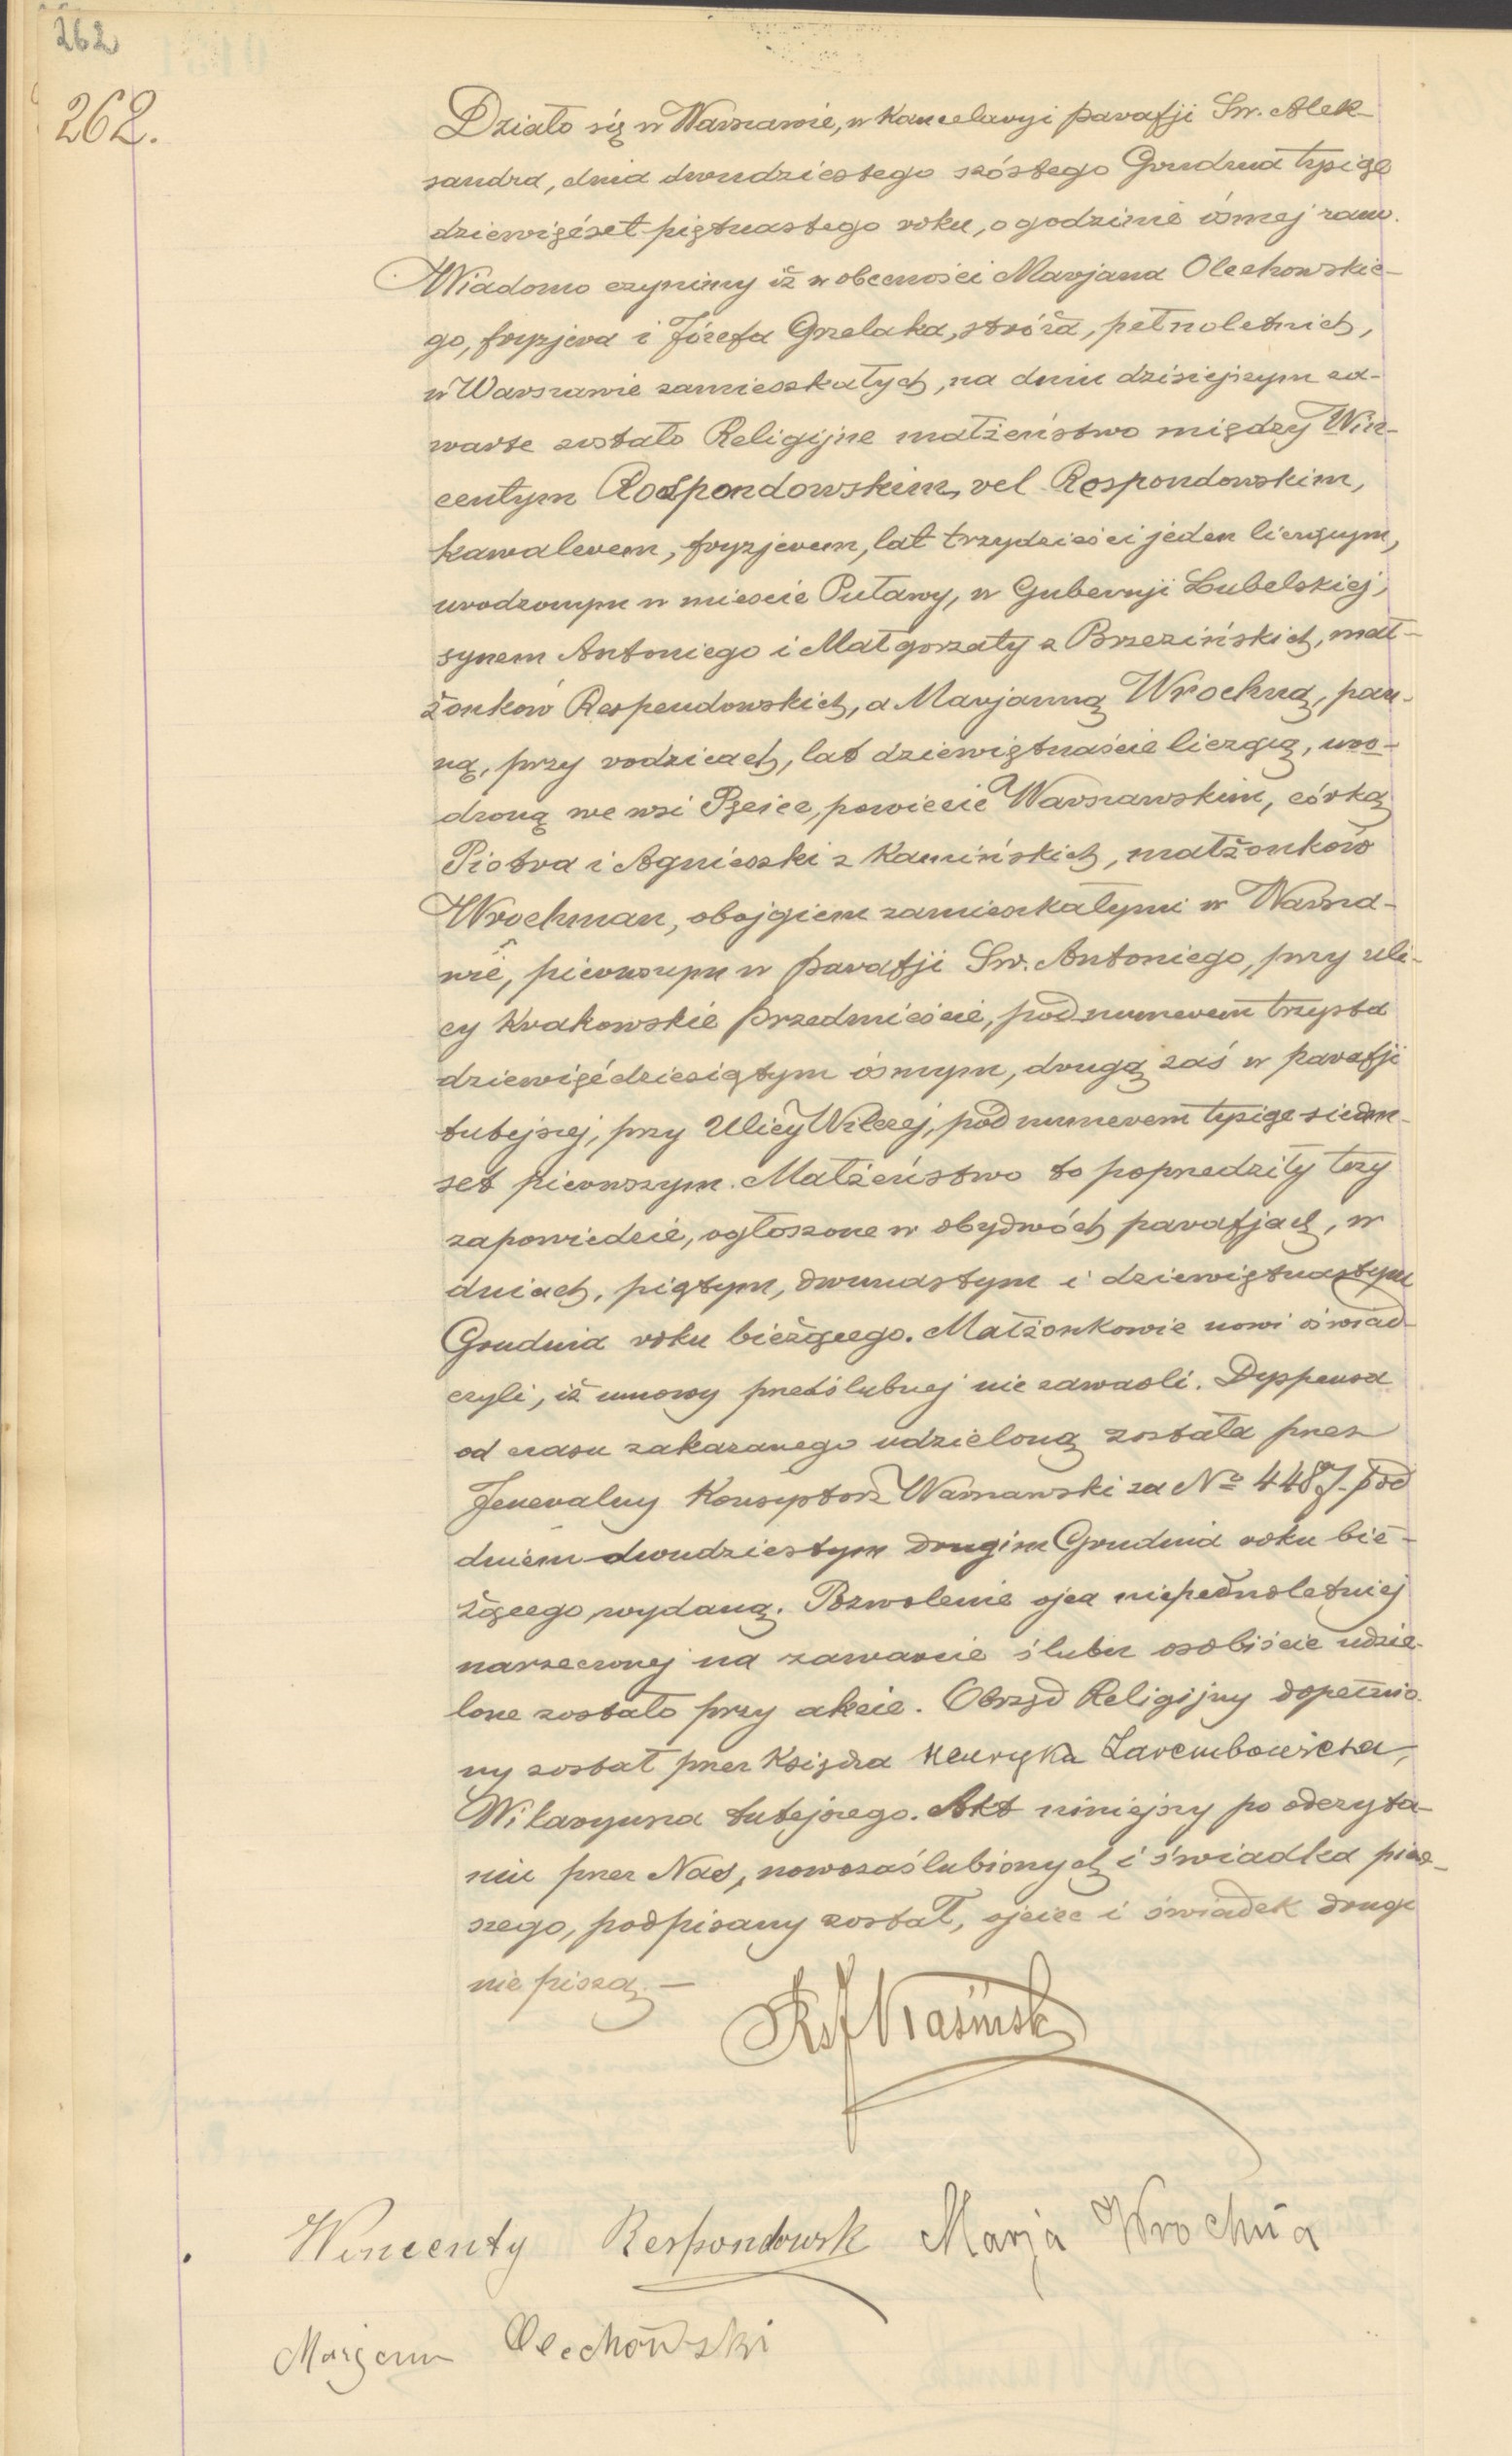 262
262.
Działo się w Warszawie, w Kancelaryi parafji Sw. Alek-
sandra, dnia dwudziestego szóstego Grudnia tysiąc
dziewięćset piętnastego roku, o godzinie ósmej rano.
Wiadomo czynimy iż w obecności Marjana Olechowskie-
go, fryzjera i Józefa Grzelaka, stróża, pełnoletnich,
w Warszawie zamieszkałych, na dniu dzisiejszym za-
warte zostało Religijne małżeństwo między Win-
centym Rospondowskim, vel Respondowskim,
kawalerem, fryzjerem, lat trzydzieści jeden liczącym,
urodzonym w mieście Puławy, w Gubernji Lubelskiej,
synem Antoniego i Małgorzaty z Brzezińskich, mał-
żonków Respondowskich, a Marjanną Wrochną, pan-
ną, przy rodzicach, lat dziewiętnaście liczącą, uro-
dzoną we wsi powiecie Warszawskim, córką
Piotra i Agnieszki z Kamińskich, małżonków
Wrochman, obojgiem zamieszkałymi w Warsza-
wie, pierwszym w parafji Sw. Antoniego, przy uli-
cy Krakowskie Przedmieście, pod numerem trzysta
dziewięćdziesiątym ósmym, drugą zaś w parafji
tutejszej, przy Ulicy Wilczej, pod numerem tysiąc siedm-
set pierwszym. Małżeństwo to poprzedziły trzy
zapowiedzie, ogłoszone w obydwóch parafjach, w
dniach, piątym, dwunastym i dziewiętnastym
Grudnia roku bieżącego. Małżonkowie nowi oświad-
czyli, iż umowy przedślubnej nie zawarli. Dyspensa
od czasu zakazanego udzieloną została przez
Jeneralny Konsystorz Warszawski za № 4487 pod
dniem dwudziestym drugim Grudnia roku bie-
żącego, wydaną. Pozwolenie ojca niepełnoletniej
narzeczonej na zawarcie ślubu osobiście udzie-
lone zostało przy akcie. Obrząd Religijny dopełnio-
ny został przez Księdza Henryka Zarembowicza,
Wikaryusza tutejszego. Akt niniejszy po odczyta-
niu przez Nas, nowozaślubionych i świadka pierw-
szego, podpisany został, ojciec i świadek drugi
nie piszą. —
Ks J Krasiński
Wincenty Respondowsk Marja Wrochna
Marjan Olechowski